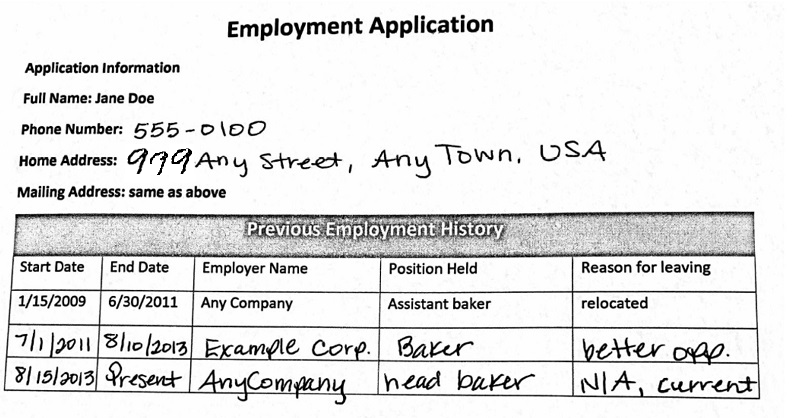 Employment Application
Application Information
Full Name: Jane Doe
Phone Number: 555-0100
Home Address: 979 Any Street, Any Town, USA
Mailing Address: same as above
Previous Employment History
Start Date End Date Employer Name Position Held Reason for leaving
1/15/2009 6/30/2011 Any Company Assistant baker relocated
7/1/2011 8/10/2013 Example Corp. Baker better opp.
8/15/2013 Present AnyCompany head baker N/A, current